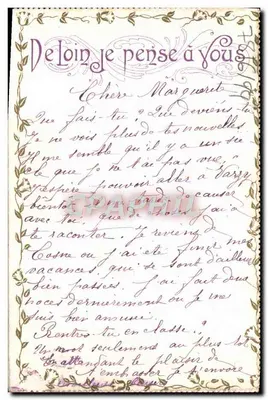 De Loin, je pense à Vous
Chère Marguerite
Que fais-tu? Que deviens-tu
Je ne vois plus de tes nouvelles
Il me semble qu'il y a un siè
cle que je ne t'ai pas vue
J'espère pouvoir aller à Varzy
bientôt causer
avec toi, que j'ai à
te raconter. Je reviens de
Cosne ou j'ai été finir mes
vacances, qui se sont d'ailleurs
bien passées. J'ai fait deux
noces dernièrement ou je me
suis bien amusée.
Rentres-tu en classe?
seulement au plus tot
En attendant le plaisir de
t'embrasser je t'envoie